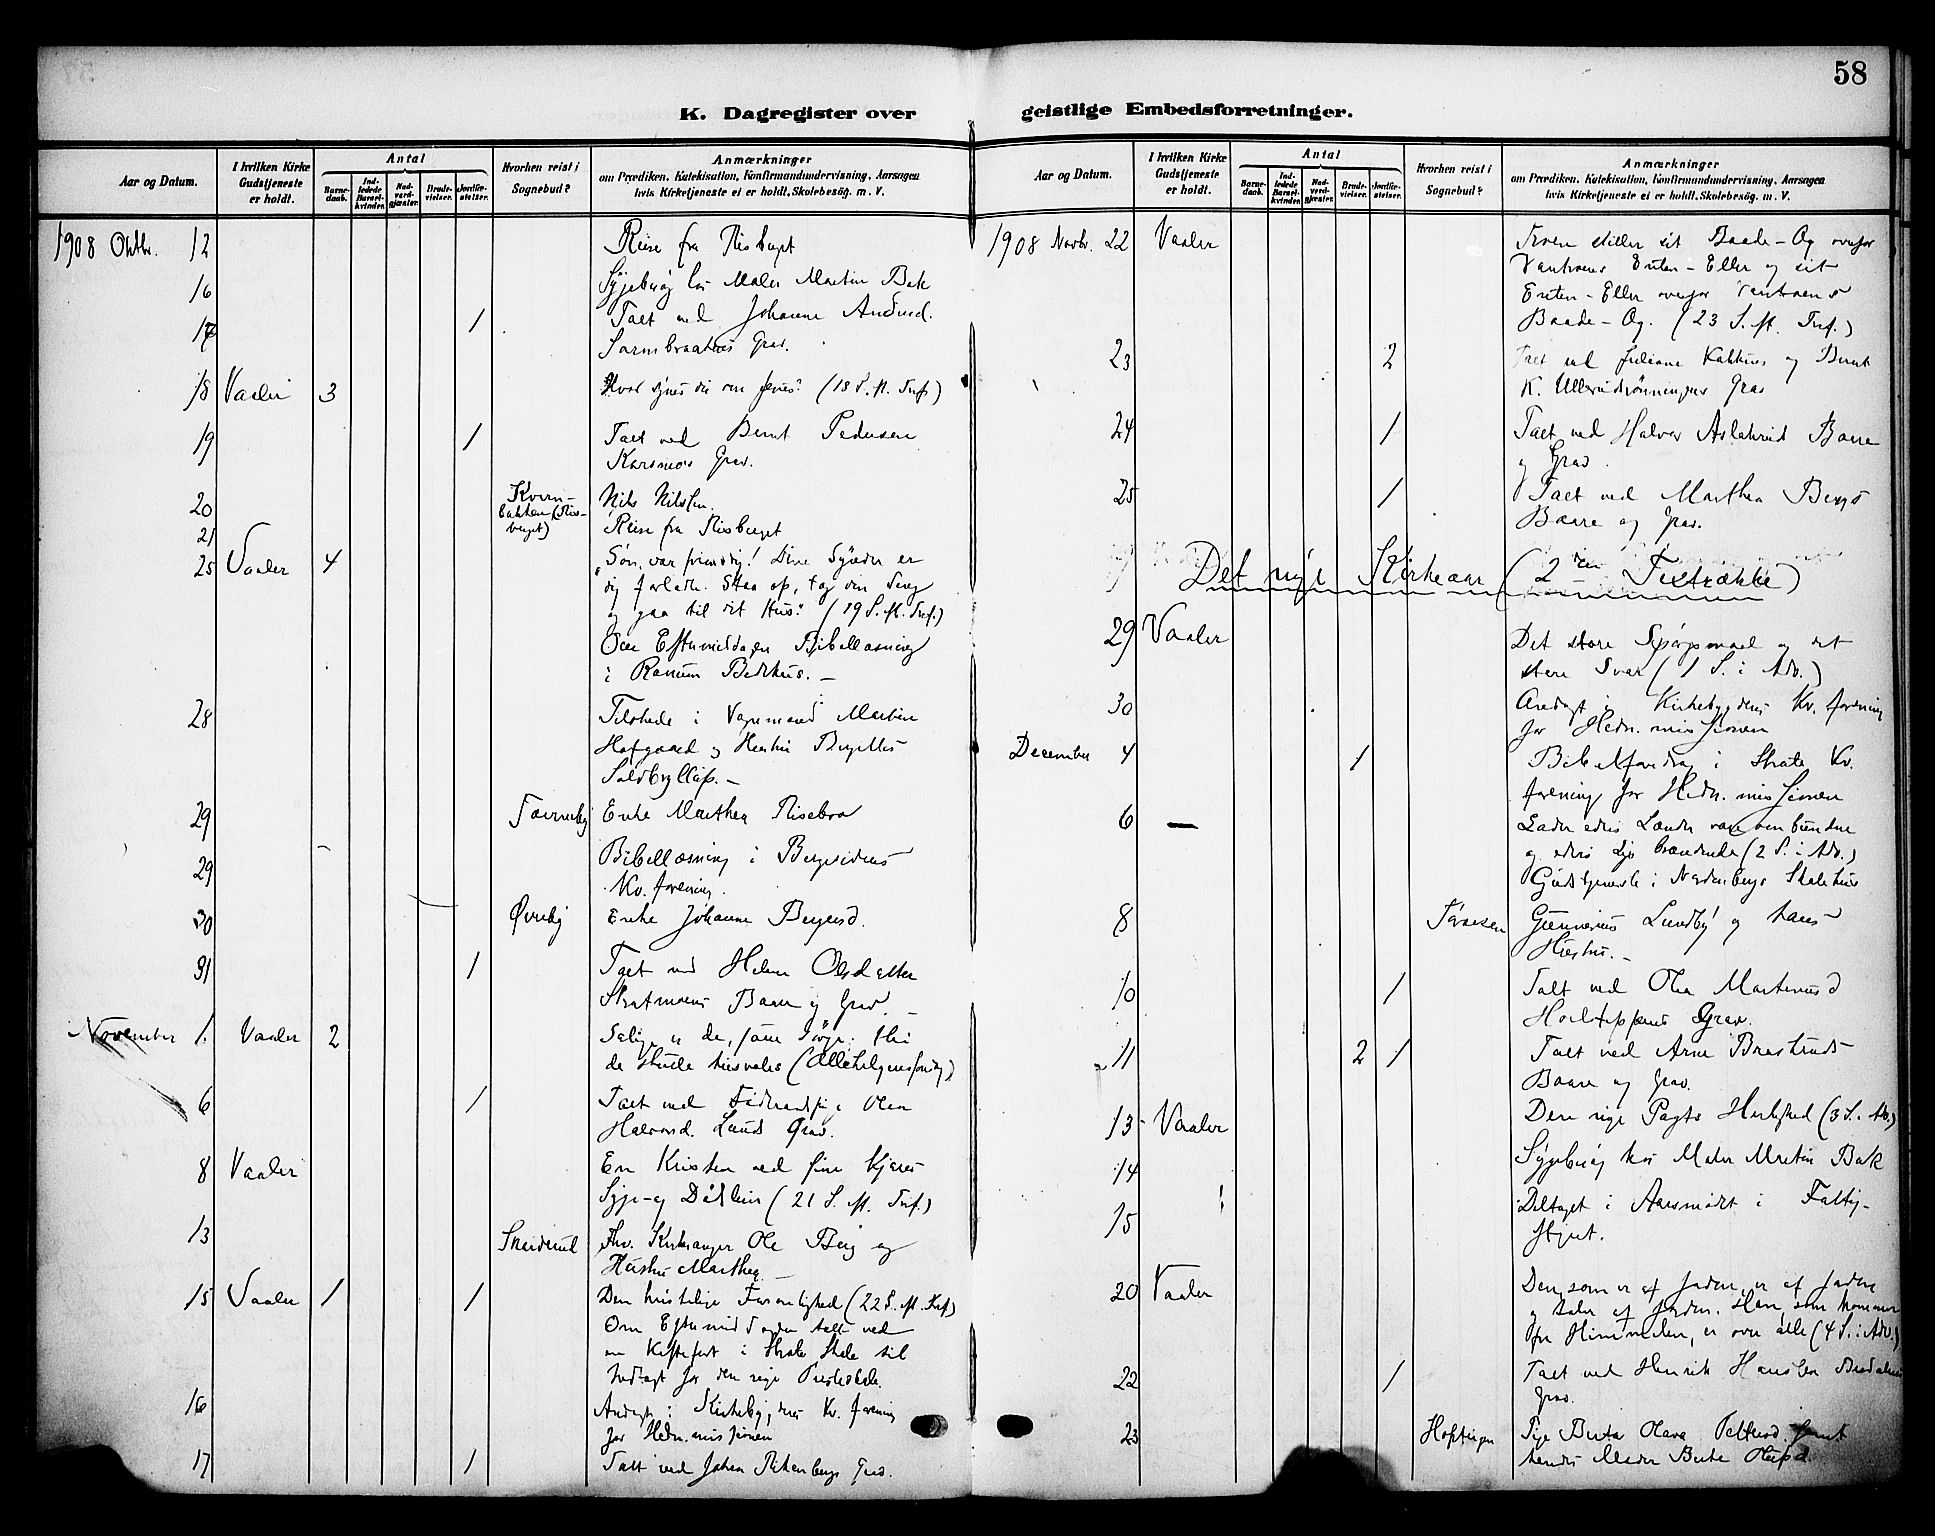 58
K. Dagregister over geistlige Embedsforretninger.
Aar og Datum.
I hvilken Kirke Gudstjeneste er holdt.
Antal
Barnedaab.
Indledede Barselkvinder.
Nadverdgjæster.
Brudevielser.
Jordfæstelser.
Hvorhen reist i Sognebud?
Anmærkninger
om Prædiken, Katekisation, Konfirmandundervisning, Aarsagen
hvis Kirketjeneste ei er holdt, Skolebesøg. m. V.
1908 Oktbr. 12 Reise fra Risberget
16 Sygebesøg hos Maler Martin Bak
17 1 Talt ved Johanne Andersd.
Grav.
18 Vaaler 3 Hvad synes du om Jesus? (18 S. e. Tref)
19 1 Talt ved Bernt Pedersen
Karsmos Grav.
20 Kvernbakken (Risberget) Nils Nilsen.
21 Reise fra Risberget
25 Vaaler 4 „Søn, vær frimodig! Dine Synder er
dig forladte. Staa op, tag din Seng
og gaa til dit Hus." (19 S. e. Tref.)
Om Eftermiddagen Bibellæsning
i Ranum Bedehus. —
28 Tilstede i Martin
Hofgaard og Hustru
Sølvbryllup. —
29 Enke Marthea Risebro
29 Bibellæsning i Bergesidens
Kv. forening.
30 Øvreby Enke Johanne
31 1 Talt ved Helene Olsdatter
Baare og Grav. —
November 1. Vaaler 2 Salige er de, som sørge; thi
de skulle husvales (Allehelgensfredag)
6 1 Talt ved Olea
Halvorsd. Lunds Grav.
8 Vaaler En Kristen ved sine Kjæres
Syge- og Dødsleie (21 S. e. Tref.)
13 Skeiderud Fhv. Kirkesanger Ole Berg og
Hustru Marthea —
15 Vaaler 1 1 Den kristelige (22 S. e. Tref)
Om Eftermiddagen talt ved
en i Skole til
Indtægt for den nye
16 Andagt i Kirkebygdens Kv. forening
for Hedn. missionen
17 1 Talt ved Johan Grav.
Aar og Datum.
I hvilken Kirke Gudstjeneste er holdt.
Antal
Barnedaab.
Indledede Barselkvinder.
Nadverdgjæster.
Brudevielser.
Jordfæstelser.
Hvorhen reist i Sognebud?
Anmærkninger
om Prædiken, Katekisation, Konfirmandundervisning, Aarsagen
hvis Kirketjeneste ei er holdt, Skolebesøg. m. V.
1908 Novbr. 22 Vaaler Troen stiller sit Baade-Og ovenfor
Vantroens Enten-Eller og sit
Enten-Eller ovenfor Vantroens
Baade-Og. (23 S. e. Tref.)
23 2 Talt ved Juliane og Bernt
K. Grav
24 1 Talt ved Halvor Baare
og Grav.
25 1 Talt ved Marthea Bergs
Baare og Grav.
Det nye Kirkeaar (2den Textrække)
29 Vaaler Det store Spørgsmaal og det
store Svar (1 S. i Adv.)
30 Andagt i Kirkebygdens Kv. forening
for Hedn. missionen
December 4 1 Bibelforedrag i Kv.
forening for Hedn. missionen
6 — Lader eders Lænder være ombundne
og eders Lys brændende (2 S. i Adv.)
Gudstjeneste i Skolehus
8 Gunnerius Lundby og hans
Hustru. —
10 1 Talt ved Olea
Grav.
11 2 1 Talt ved Arne
Baare og Grav.
13 Vaaler Den nye Pagts Herlighed (3 S. i Adv.)
14 Sygebesøg hos Maler Martin Bak
15 Deltaget i Aarsmødet i Fattigstyret.
20 Vaaler Den, som er af Jorden, er af Jorden
og taler af Jorden. Han, som kommer
fra Himmelen, er over alle (4 S. i Adv.)
22 1 Talt ved Henrik Hansen
Grav.
23 Pige Berta Olava samt
hendes Moder Berte